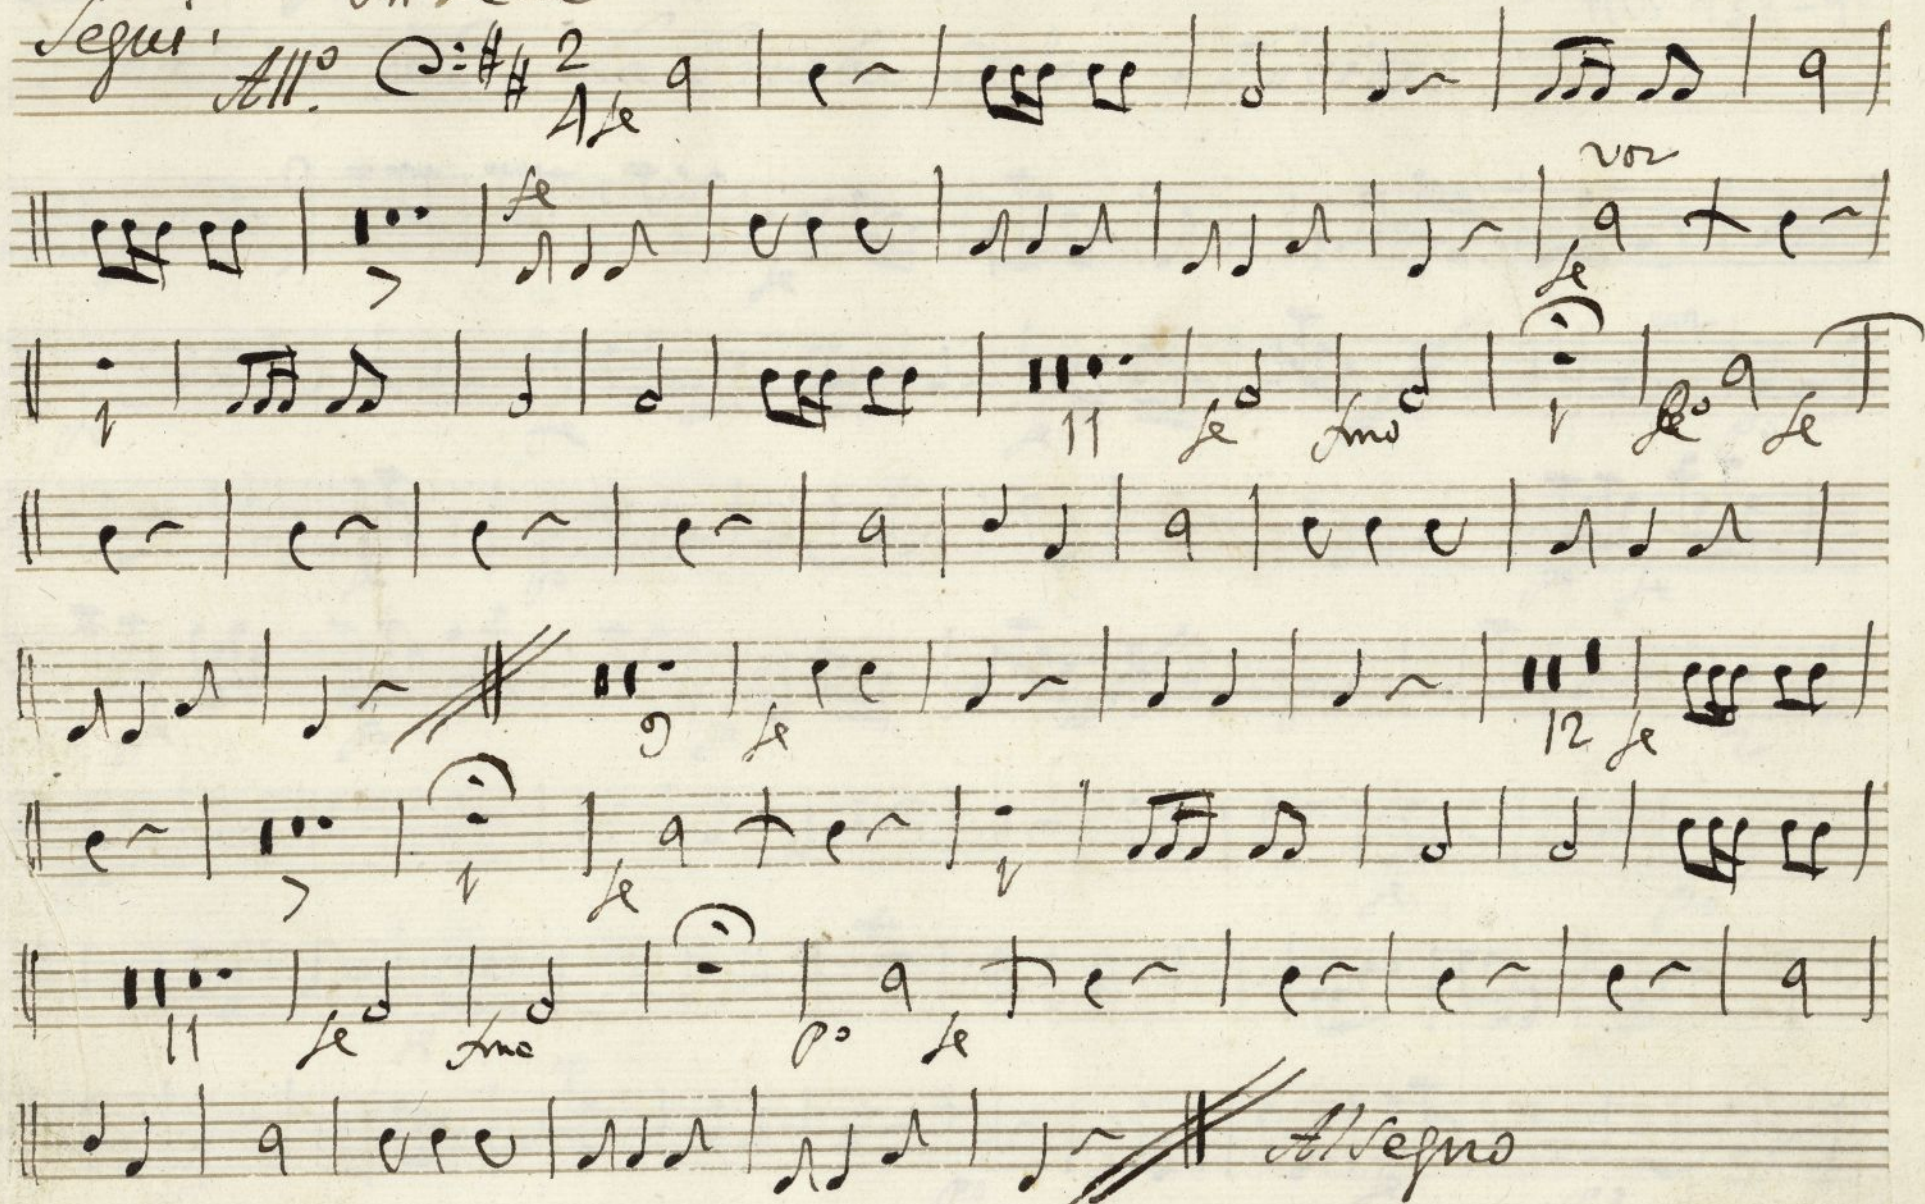 Segui. All.º 2
4 fe
voz
fe
7 fe
1 11 fe fmo 1 fe
9 fe 12 fe
7 1 fe 1
11 fe fmo pº fe
Al Segno